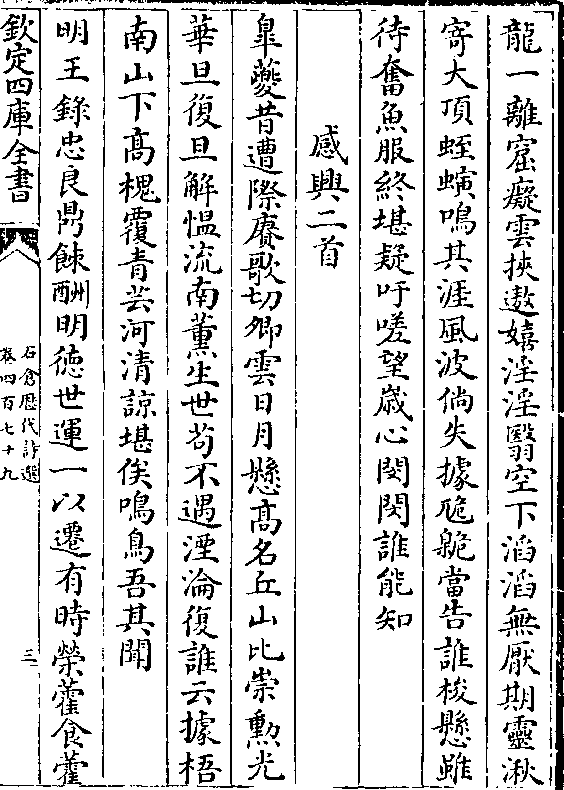 龍一離窟癡雲挾遨嬉淫淫翳空下滔滔無厭期靈湫
寄大頂蛭螾鳴其涯風波倘失據卼臲當告誰梭懸雖
待奮魚服終堪疑吁嗟望歲心閔閔誰能知
感興二首
臯夔昔遭際賡歌切卿雲日月懸髙名丘山比崇勲光
華旦復旦解愠流南薰生世茍不遇湮淪復誰云據梧
南山下髙槐覆青芸河清諒堪俟鳴鳥吾其聞
明王錄忠良鼎餗酬明徳世運一以遷有時榮藿食藿
欽定四庫全書
石倉歴代詩選
卷四百七十九
三